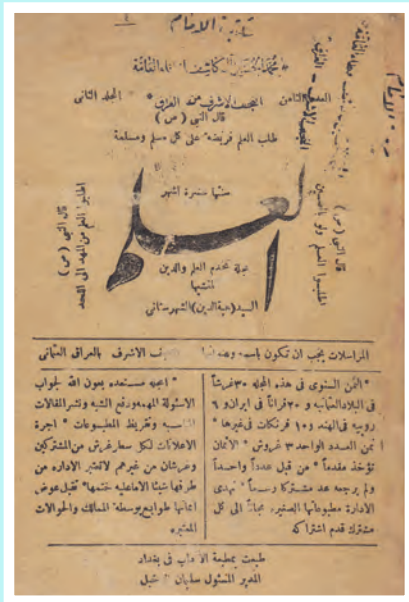 العدد الثامن النجف الاشرف من العراق * المجلد الثاني
قال النبي (ص)
طلب العلم فريضة على كل مسلم ومسلمة
قال النبي (ص)
اطلبوا العلم ولو بالصين
قال النبي (ص)
اطلبوا العلم من المهد الى اللحد
سنتها عشرة اشهر
العلم
مجلة تخدم العلم والدين
لمنشئها
السيد (هبة الدين) الشهرستاني
المراسلات يجب ان تكون باسم الاشرف بالعراق العثماني
* الثمن السنوى فى هذه المجله ٣٠ غرشاً
فى البلاد العثمانيه و ٣٠ قراناً فى ايران و ٦
روبيه فى الهند و ١٠ فرنكات فى غيرها *
ثمن العدد الواحد ٣ غروش * الاثمان
تؤخذ مقدماً * من قبل عدداً واحداً
ولم يرجعه عد مشتركا رسماً * تهدى
الادارة مطبوعاتها الصغيره مجاناً الى كل
مشترك قدم اشتراكه
* المجله مستعده بعون الله لجواب
الاسئولة المهمه ورفع الشبه ونشر المقالات
وتقريظ المطبوعات * اجرة
الاعلانات لكل سطر غرش من المشتركين
وغرشان من غيرهم لاتعتبر الاداره من
طرفها شيئا الا ماعليه ختمها * تقبل عوض
اثمانها طوابع بوسطة الممالك والحوالات
المعتبره
طبعت بمطبعة الآداب فى بغداد
المدير المسئول سلمان